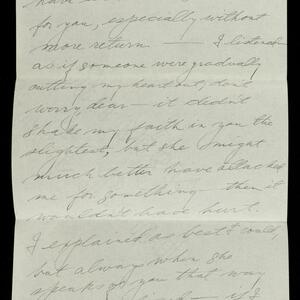 have
for you, especially without
more return — I listened
as if someone were gradually
cutting my heart out; don't
worry, dear — it didn't
shake my faith in you the
slightest, but she might
much better have attacked
me for something — then it
wouldn't have hurt.
I explained as best I could,
but always when she
speaks of you that way